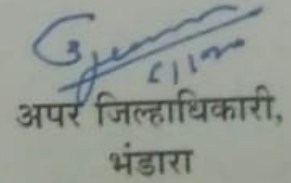 अपर जिल्हाधिकारी,
भंडारा